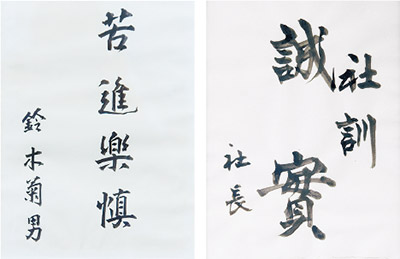 苦進樂慎
鈴木菊男
社訓
誠實
社長